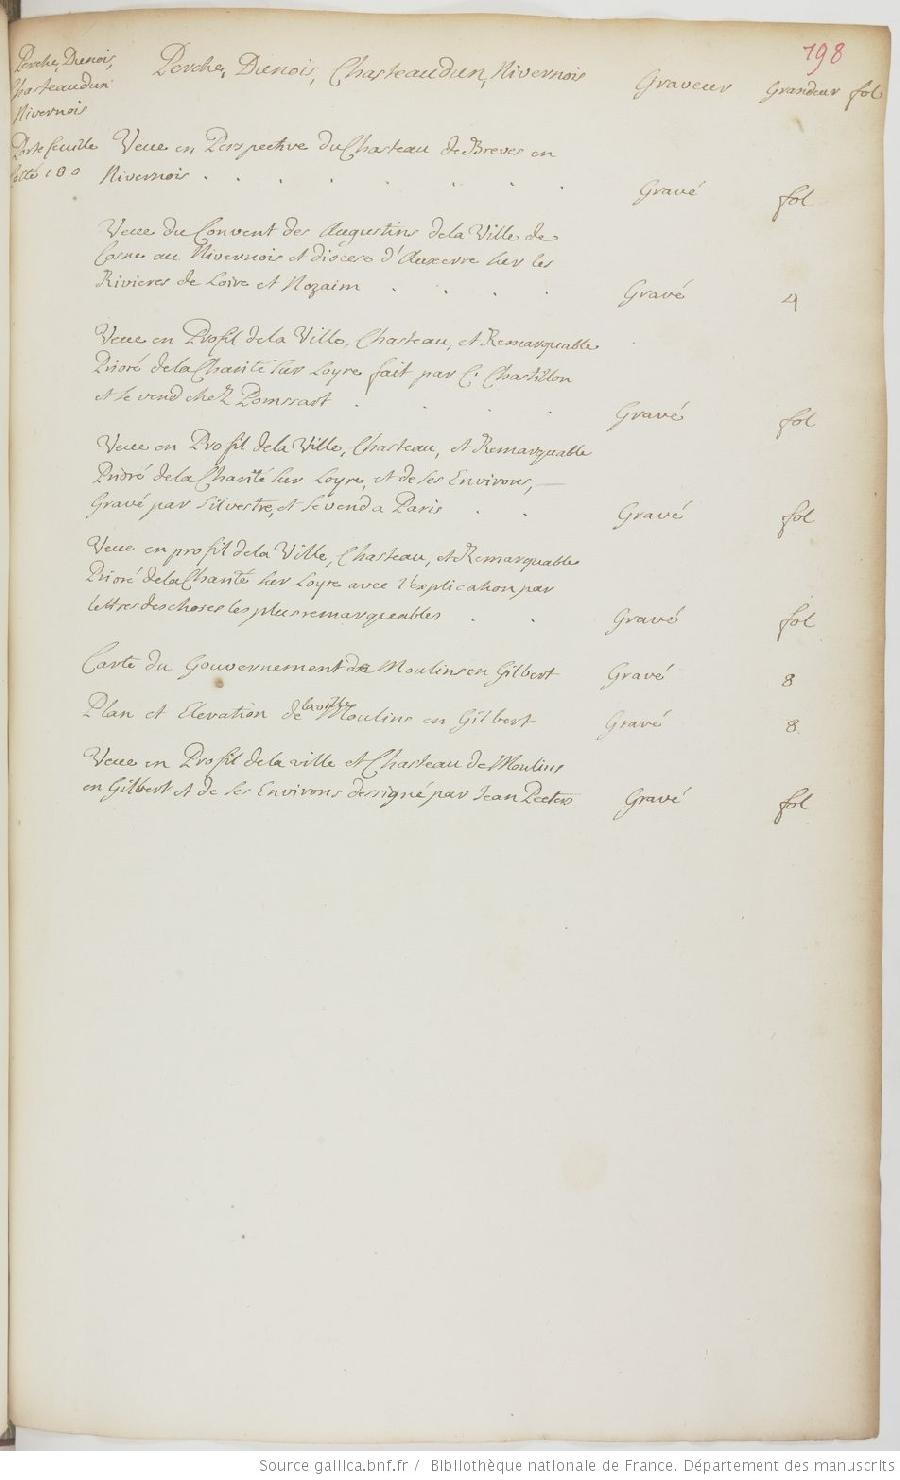 198
Perche, Dunois,
Chasteaudun
Nivernois
Perche, Dunois, Chasteaudun, Nivernois
Graveur Grandeur fol
Portefeuille
cotté 100
Veue en Perspective du Chasteau de Breves en
Nivernois . . . . . . . . Gravé fol
Veue du Convent des Augustins de la Ville de
Cosne au Nivernois et diocese d'Auxerre sur les
Rivieres de Loire et Nozaim . . . . Gravé 4
Veue en Profil de la Ville, Chasteau, et Remarquable
Prioré de la Charité sur Loyre fait par C. Chastillon
et se vend chez Pomssart . . . . Gravé fol
Veue en Profil de la Ville, Chasteau, et Remarquable
Prioré de la Charité sur Loyre, et de ses Environs,
Gravé par Silvestre, et se vend a Paris . . Gravé fol
Veue en profil de la Ville, Chasteau, et Remarquable
Prioré de la Charité sur Loyre avec l'explication par
lettres des choses les plus remarqueables . . Gravé fol
Carte du Gouvernement de Moulins en Gilbert Gravé 8
Plan et Elevation de la ville Moulins en Gilbert Gravé 8.
Veue en Profil de la ville et Chasteau de Moulins
en Gilbert et de ses Environs dessigné par Jean Peeters Gravé fol
Source gallica.bnf.fr / Bibliothèque nationale de France. Département des manuscrits